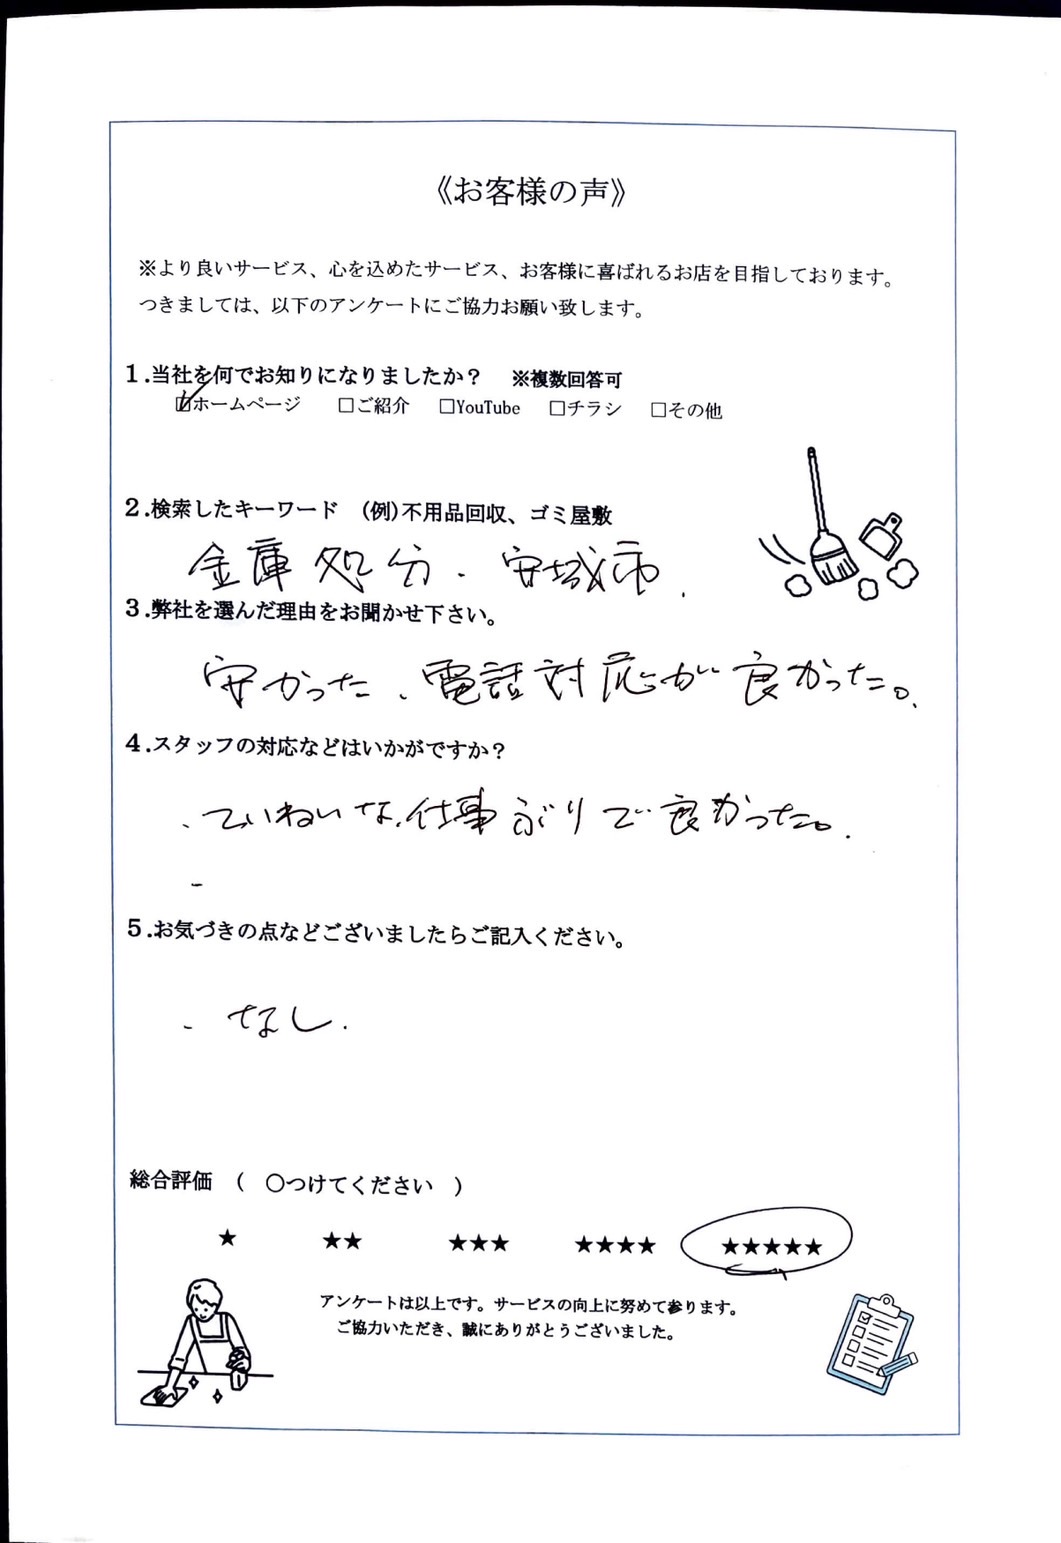 《お客様の声》
※より良いサービス、心を込めたサービス、お客様に喜ばれるお店を目指しております。
つきましては、以下のアンケートにご協力お願い致します。
1.当社を何でお知りになりましたか？ ※複数回答可
☑ホームページ □ご紹介 □YouTube □チラシ □その他
2.検索したキーワード (例)不用品回収、ゴミ屋敷
金庫処分．安城市．
3.弊社を選んだ理由をお聞かせ下さい。
安かった、電話対応が良かった。
4.スタッフの対応などはいかがですか？
・ていねいな仕事ぶりで良かった。
5.お気づきの点などございましたらご記入ください。
・なし．
総合評価 ( ○つけてください )
★ ★★ ★★★ ★★★★ ★★★★★
アンケートは以上です。サービスの向上に努めて参ります。
ご協力いただき、誠にありがとうございました。